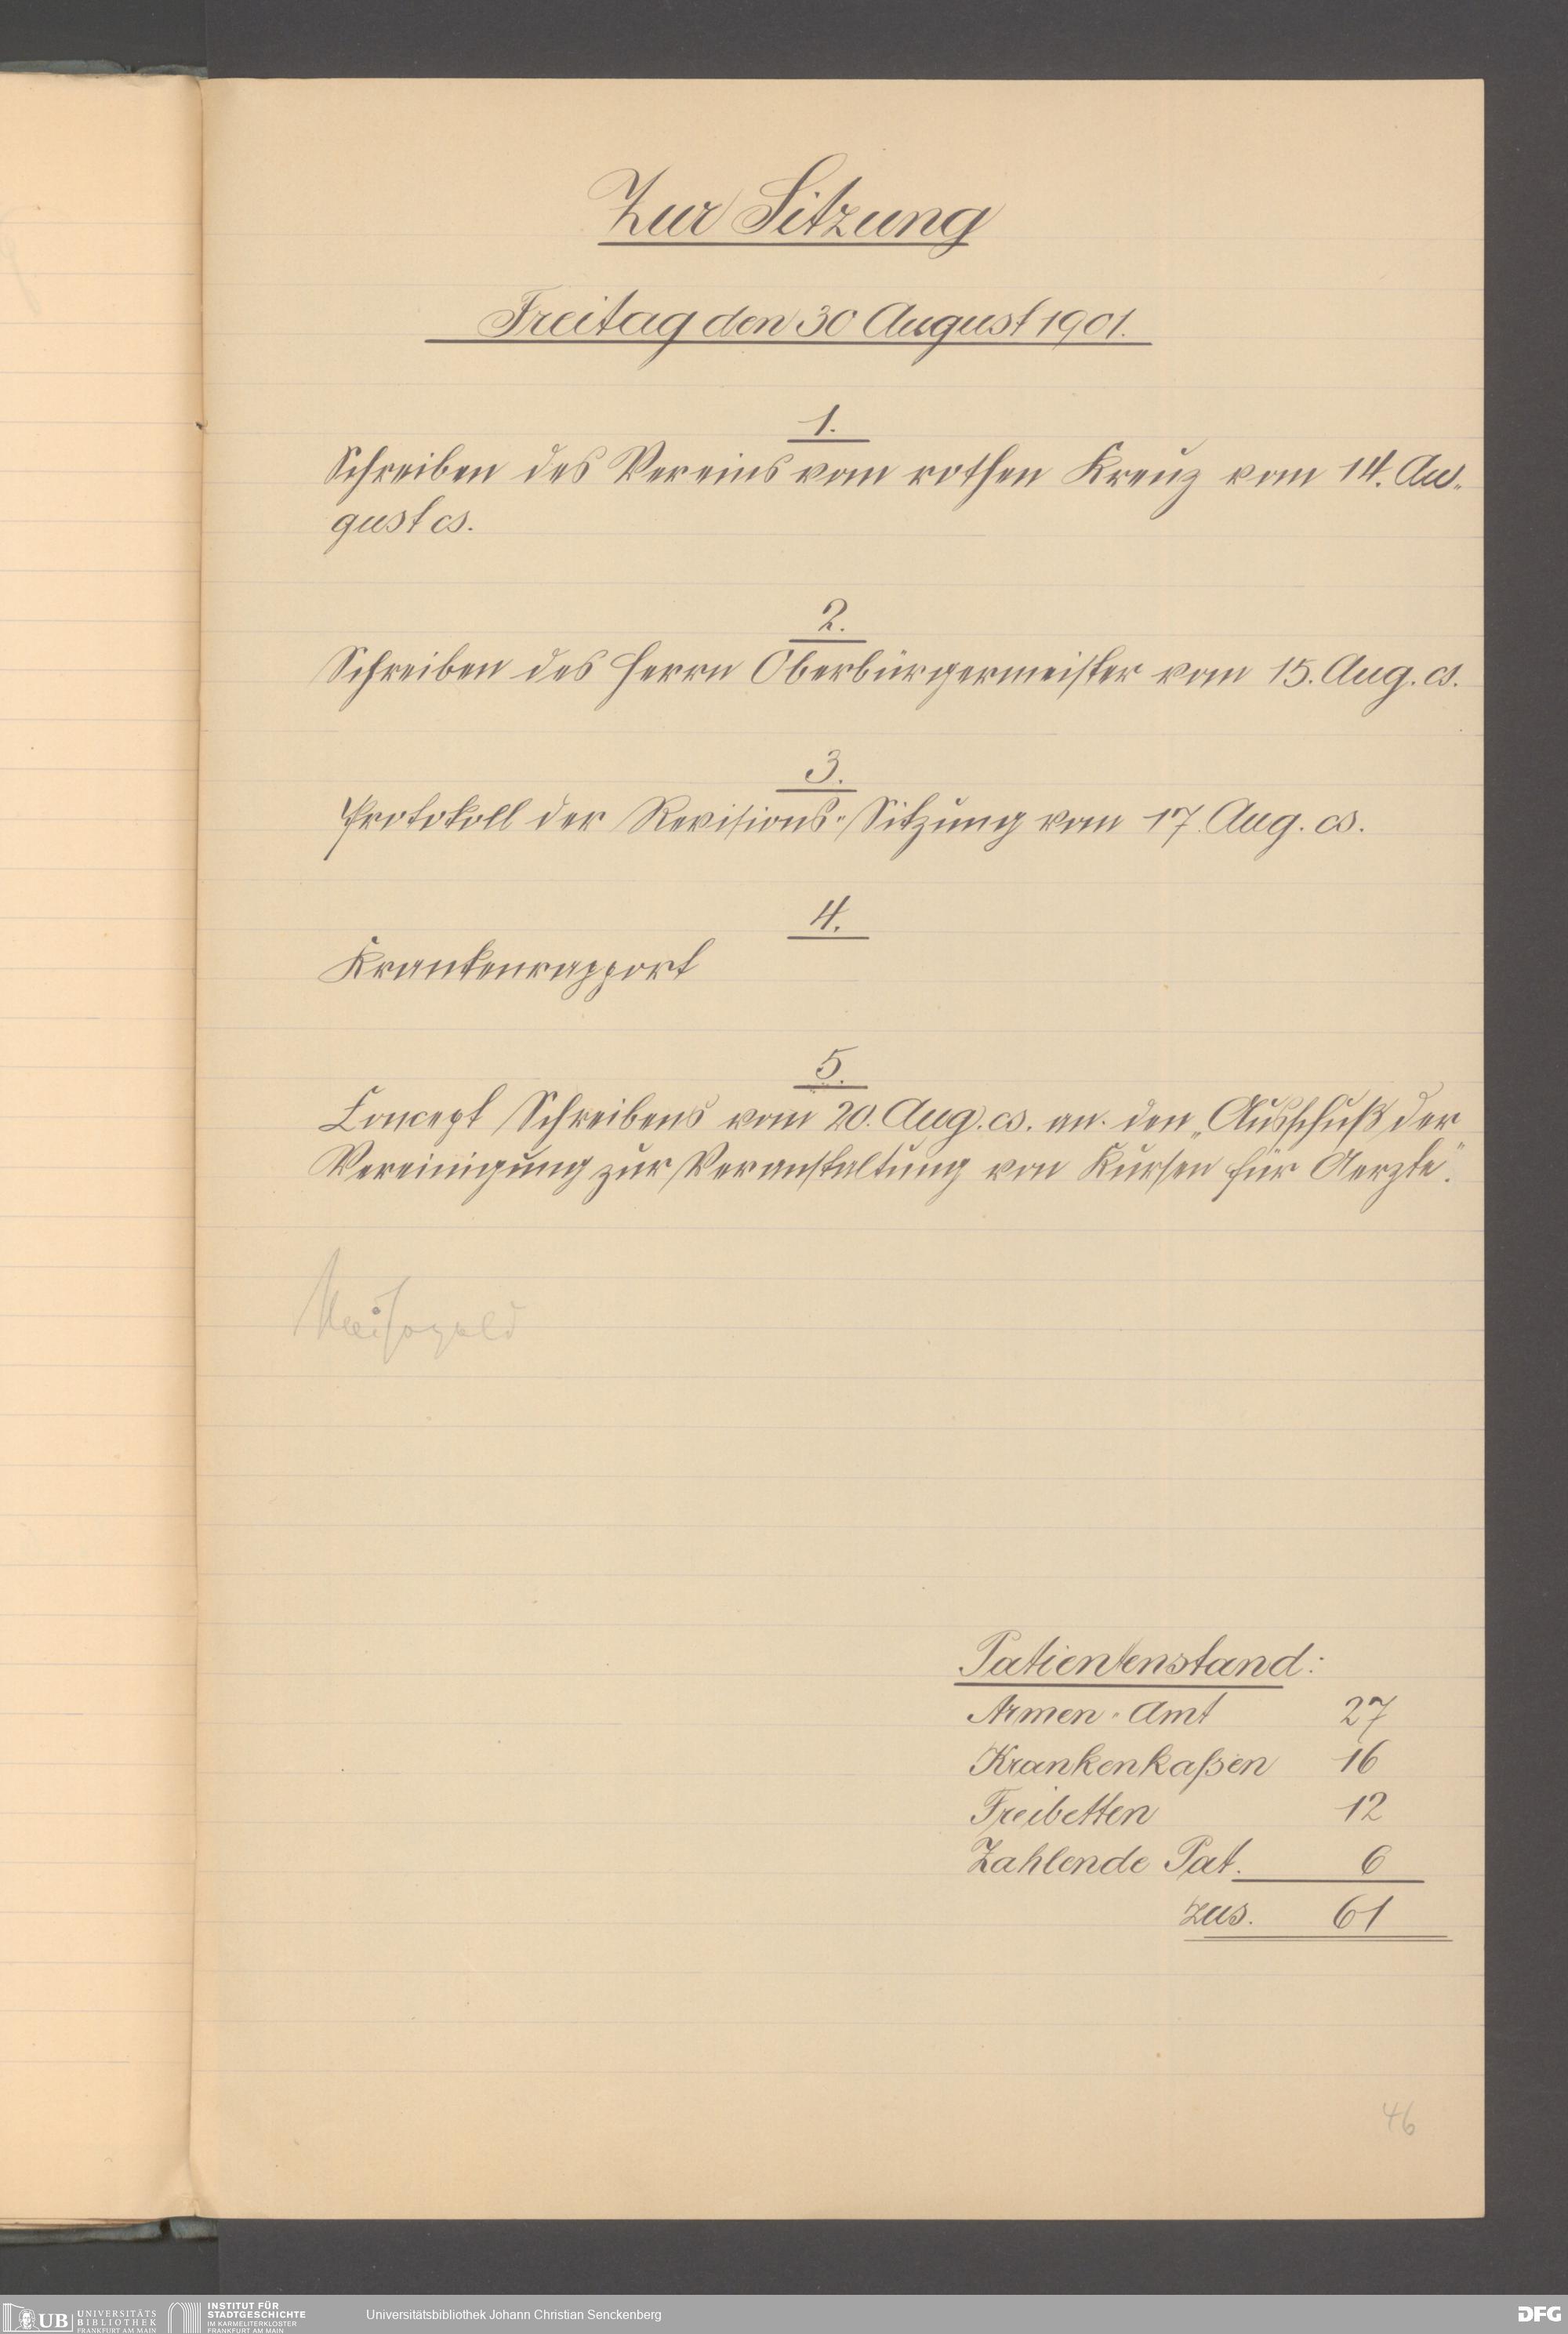 Zur Sitzung
Freitag den 30 August 1901.
1.
Schreiben des Vereins vom rothen Kreuz vom 14. Au-
gust cs.
2.
Schreiben des Herrn Oberbürgermeister vom 15. Aug. cs.
3.
Protokoll der Revisions-Sitzung vom 17. Aug. cs.
4.
Krankenrapport
5.
Concept Schreibens vom 20. Aug. cs. an den „Ausschuß der
Vereinigung zur Veranstaltung von Kursen für Aerzte".
Patientenstand:
Armen-Amt 27
Krankenkaßen 16
Freibetten 12
Zahlende Pat. 6
zus. 61
46
UB UNIVERSITÄTS BIBLIOTHEK FRANKFURT AM MAIN
INSTITUT FÜR STADTGESCHICHTE IM KARMELITERKLOSTER FRANKFURT AM MAIN
Universitätsbibliothek Johann Christian Senckenberg
DFG